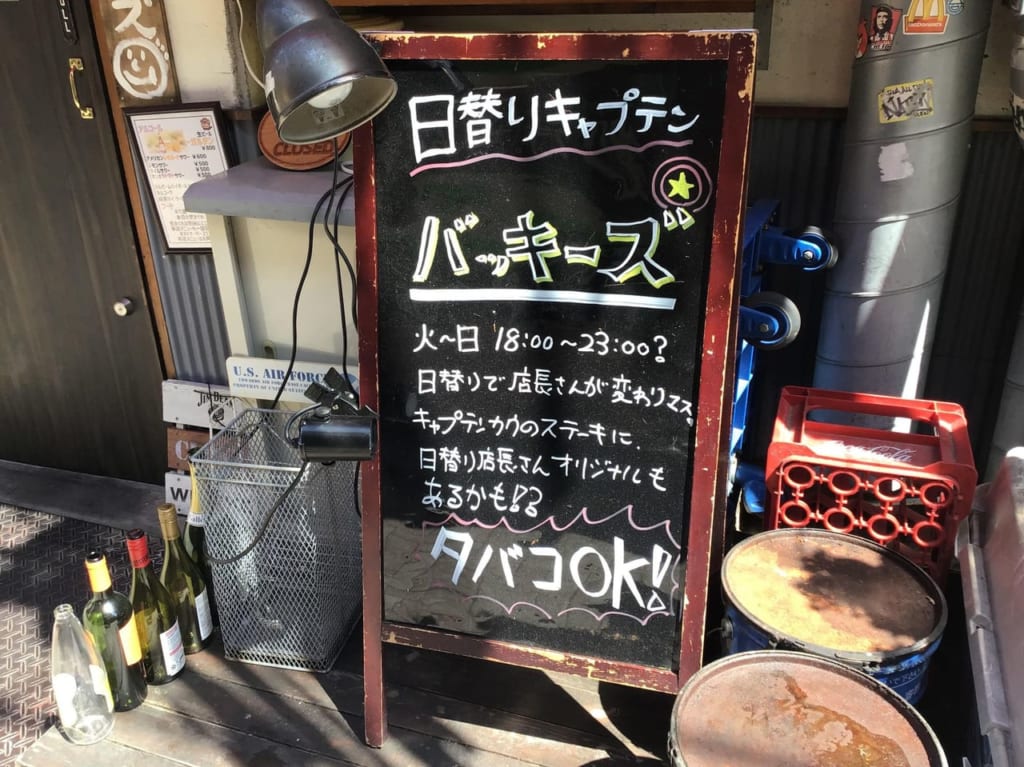 日替りキャプテン
バッキーズ
火~日 18:00~23:00?
日替りで店長さんが変わりマス。
キャプテンカウのステーキに、
日替り店長さんオリジナルも
あるかも!?
タバコOK!
CLOSED
アルコール
生ビール
¥500
U.S. AIR FORCE
JIM BEAM
W
ズ